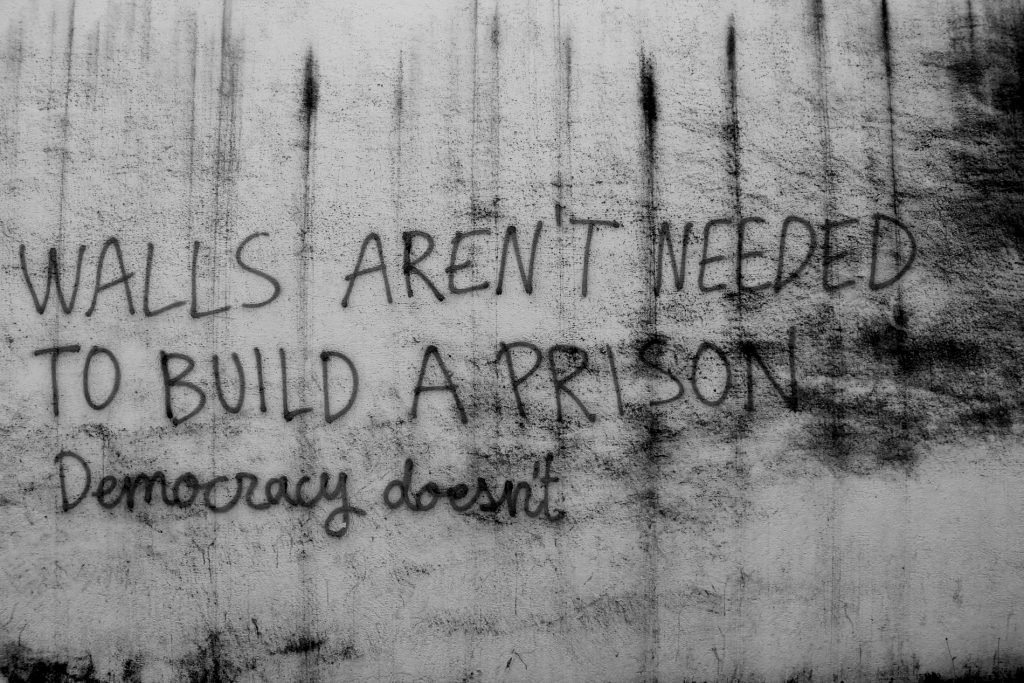 WALLS AREN'T NEEDED
TO BUILD A PRISON
Democracy doesn't